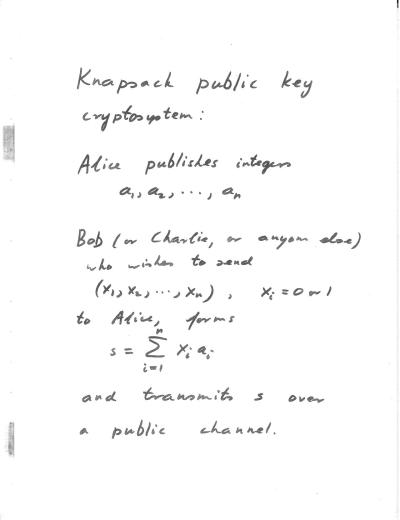 Knapsack public key
cryptosystem:
Alice publishes integers
a₁, a₂, ..., aₙ
Bob (or Charlie, or anyone else)
who wishes to send
(x₁, x₂, ..., xₙ), xᵢ = 0 or 1
to Alice, forms
s = ∑ᵢ₌₁ⁿ xᵢ aᵢ
and transmits s over
a public channel.